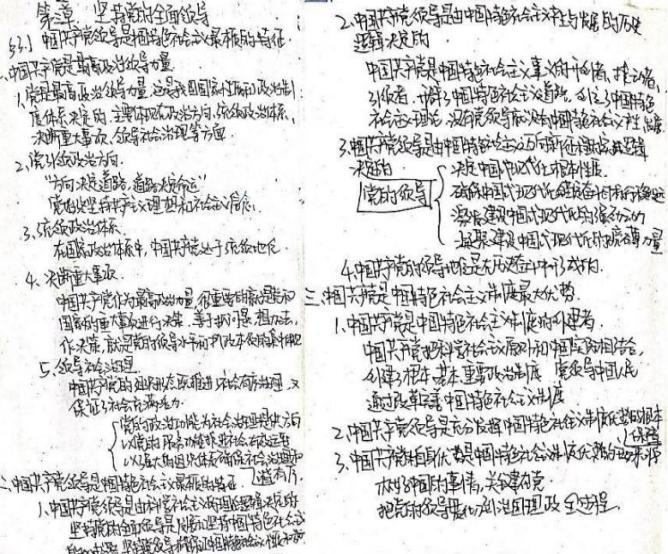 第三章 坚持党的全面领导
§3.1 中国共产党领导是中国特色社会主义最本质的特征
一、中国共产党是最高政治领导力量
1、党是最高政治领导力量，这是我国国家性质和政治制
度体系决定的，主要体现在政治方向、统领政治体系、
决断重大事项、领导社会治理等方面
2、党引领政治方向
“方向决定道路，道路决定命运”
党始终坚持共产主义理想和社会主义信念
3、统领政治体系
在国家政治体系中，中国共产党处于统领地位
4、决断重大事项
中国共产党作为最高政治力量，很重要的就是对
国家的重大事项进行决策，善于抓问题、想办法、
作决策，就是党的领导水平和执政本领的集中体现
5、领导社会治理
中国共产党的组织形态既推进社会有序治理，又
保证了社会充满活力
党的政治功能为社会治理提供方向
以党的服务功能促进社会有效运转
以强大的组织体系确保社会治理和
谐有力
二、中国共产党领导是中国特色社会主义最本质的特征
1、中国共产党领导是由科学社会主义的理论逻辑决定的
坚持党的全面领导是坚持中国特色社会主
2、中国共产党领导是由中国特色社会主义产生与发展的历史
逻辑决定的
中国共产党是中国特色社会主义事业的开创者、推动者、
引领者，开辟了中国特色社会主义道路，创立了中国特色
社会主义理论，没有党领导就没有中国特色社会主义产生、发展
3、中国共产党领导是由中国特色社会主义迈向新征程的实践逻辑
决定的
党的领导
决定中国式现代化根本性质
确保中国式现代化锚定奋斗目标行稳致远
激发建设中国式现代化的强劲动力
凝聚建设中国式现代化的磅礴力量
4、中国共产党的领导地位是在历史奋斗中形成的
三、中国共产党是中国特色社会主义制度最大优势
1、中国共产党是中国特色社会主义制度的创建者
中国共产党把科学社会主义原则和中国实际相结合，
创建了根本、基本、重要政治制度 党领导中国人民
通过改革完善中国特色社会主义制度
2、中国共产党领导是充分发挥中国特色社会主义制度优势的根本
保障
3、中国共产党自身优势是中国特色社会主义制度优势的主要来源
办好中国的事情，关键在党
把党的领导贯彻到治国理政全过程